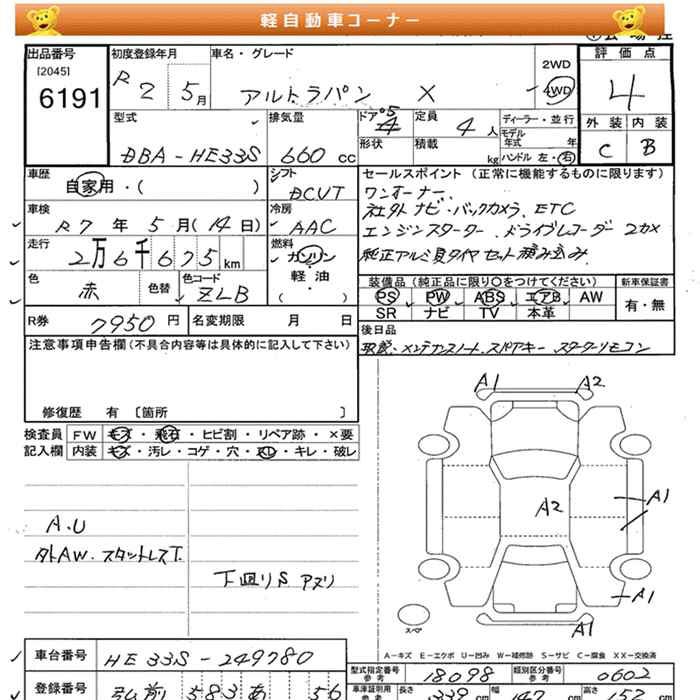 軽自動車コーナー
出品番号
[2045]
6191
初度登録年月
R2 5月
車名・グレード
アルトラパン X
2WD
4WD
評価点
4
外装 内装
C B
型式
DBA-HE33S
排気量
660 cc
ドア 5
形状
定員
4人
積載
kg
ディーラー・並行
モデル年式 年
ハンドル 左・右
車歴
自家用・( )
シフト
DCVT
車検
R7年5月(14日)
冷房
AAC
走行
2万6千675km
燃料
ガソリン
軽・油
( )
色
赤
色替
色コード
ZLB
セールスポイント (正常に機能するものに限ります)
ワンオーナー.
社外ナビ・バックカメラ、ETC
エンジンスターター、ドライブレコーダー 2カメ
純正アルミ夏タイヤセット積み込み.
装備品(純正品に限り〇をつけてください)
PS PW ABS エアB AW
SR ナビ TV 本革
新車保証書
有・無
R券
7950円
名変期限 月 日
後日品
取説・メンテナンスノート、スペアキー、スターターリモコン
注意事項申告欄(不具合内容等は具体的に記入して下さい)
修復歴 有 〔箇所 〕
検査員
記入欄
FW キズ・飛石・ヒビ割・リペア跡・×要
内装 キズ・汚レ・コゲ・穴・スレ・キレ・破レ
A.U
外AW.スタットレスT.
下回りS アズリ
A1 A2
A2
A1
A1
A1
スペア
A-キズ E-エクボ U-凹み W-補修跡 S-サビ C-腐食 XX-交換済
車台番号
HE33S-249780
型式指定番号
参考
18098
類別区分番号
参考
0602
登録番号
弘前 583 あ 56
車庫証明用
参考
長さ
339 cm
幅
147 cm
高さ
152 cm